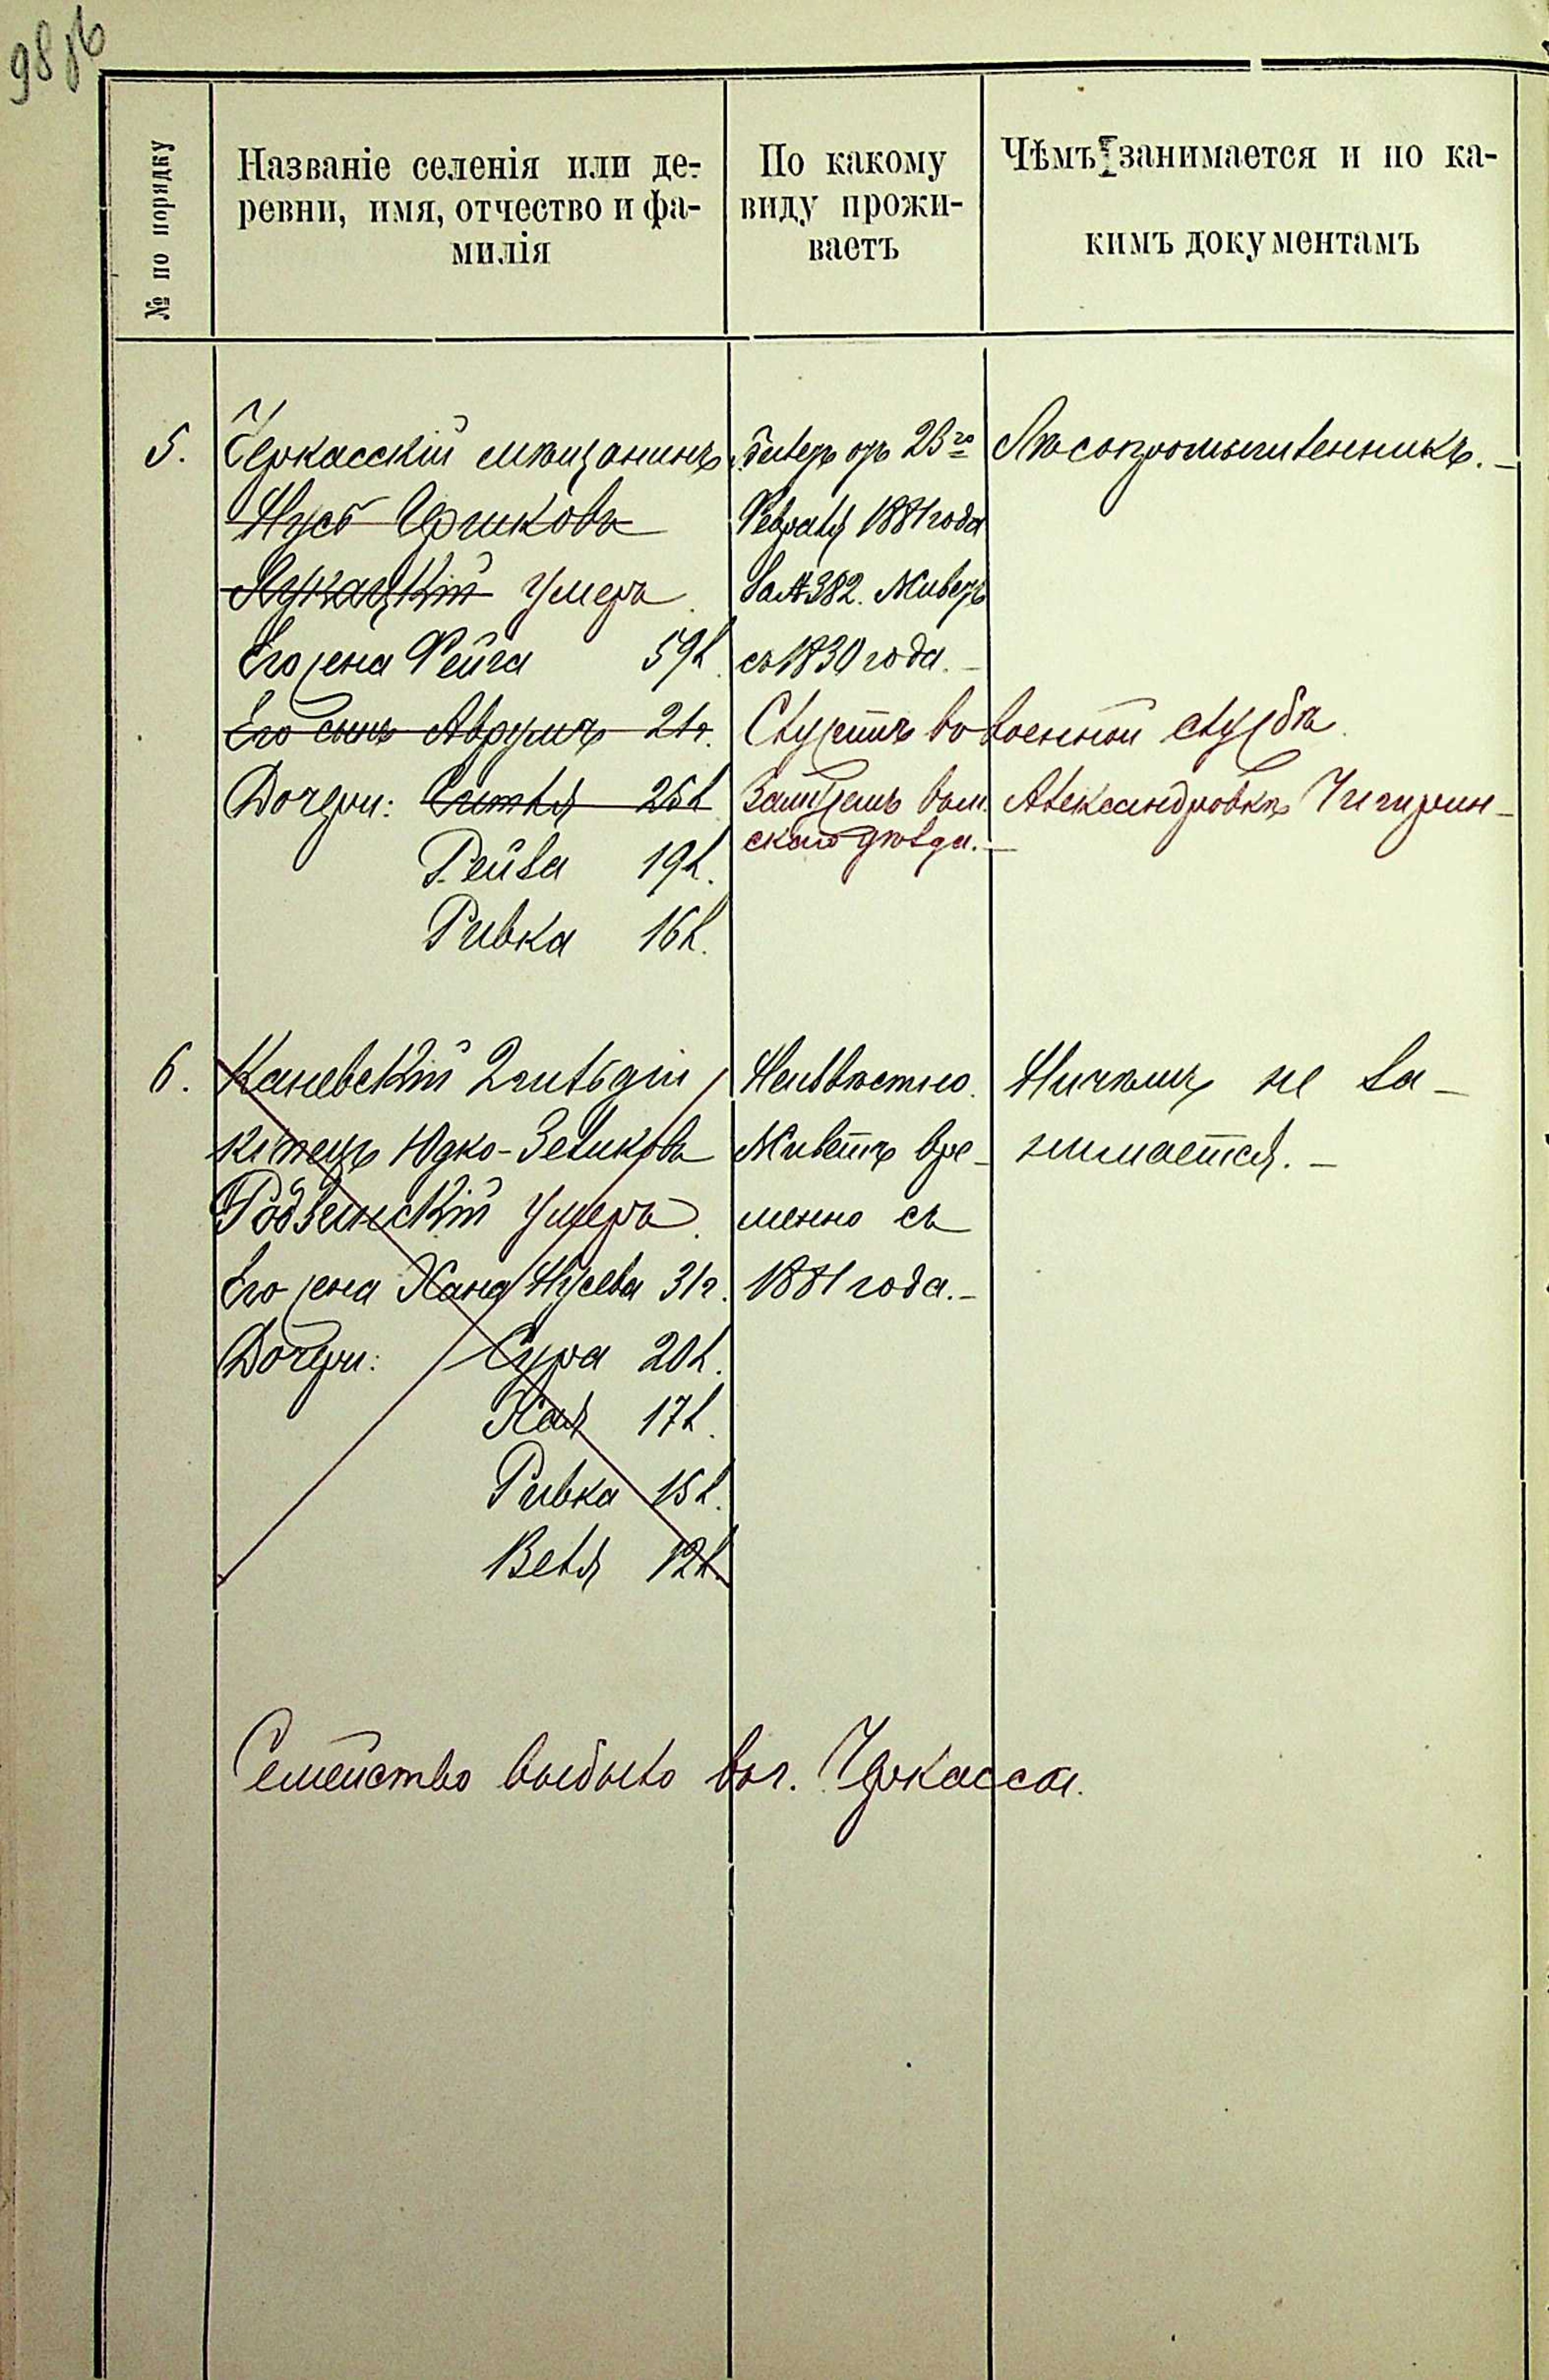 98 об
№ по порядку
Названіе селенія или де-
ревни, имя, отчество и фа-
милія
По какому
виду прожи-
ваетъ
Чѣмъ занимается и по ка-
кимъ документамъ
5.
Черкасскій мѣщанинъ
Нусь Орликовъ
умеръ
Его жена Фейга 59 л.
Его сынъ Аврумъ 21 г.
Дочери: 25 л
Рейза 19 л.
Ривка 16 л.
билетъ отъ 23го
Февраля 1881 года
за № 382. Живетъ
съ 1830 года.
Служитъ въ военной службѣ.
Замужемъ въ м. Александровкѣ Чигирин-
скаго уѣзда.
Лѣсопромышленникъ.
6.
Каневскій 2 гильдіи
Юдко-Зеликовъ
умеръ.
Его жена Хана Нусева 31 г.
Дочери: Сура 20 л.
Хая 17 л.
Ривка 15 л.
Веля 12 л.
Неизвѣстно.
Живетъ вре-
менно съ
1881 года.
Ничѣмъ не за-
нимается.
Семейство выбыло въ г. Черкассы.